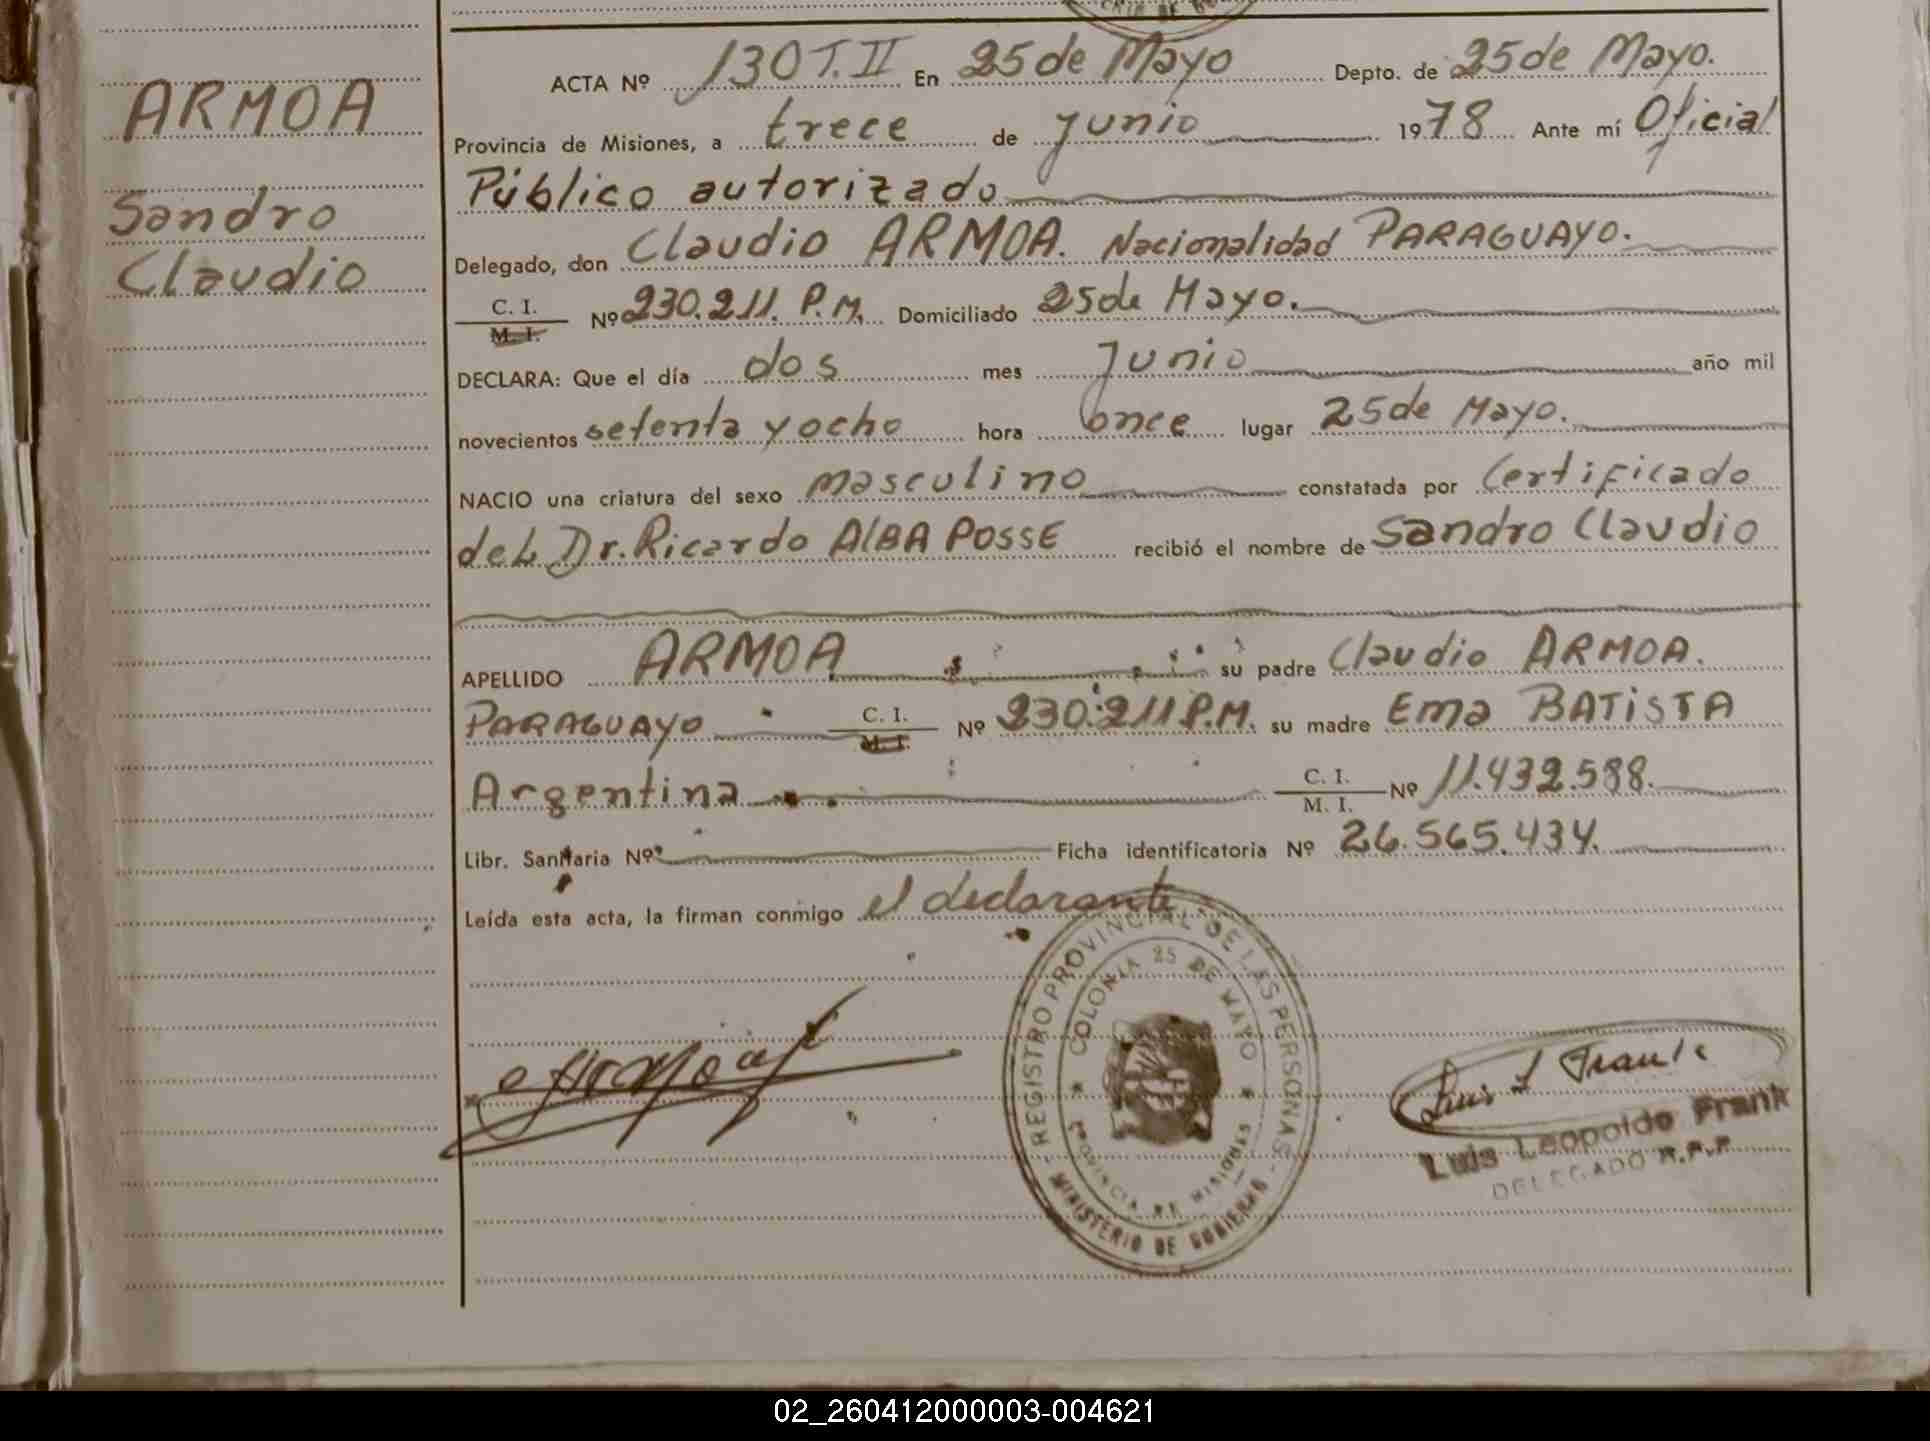 ARMOA
Sandro
Claudio
ACTA Nº 130 T.II En 25 de Mayo Depto. de 25 de Mayo.
Provincia de Misiones, a trece de junio 1978 Ante mí Oficial
Público autorizado
Delegado, don Claudio ARMOA. Nacionalidad PARAGUAYO.
C. I.
M. I.
Nº 230.211. P.M. Domiciliado 25 de Mayo.
DECLARA: Que el día dos mes Junio año mil
novecientos setenta y ocho hora once lugar 25 de Mayo.
NACIO una criatura del sexo masculino constatada por Certificado
del Dr. Ricardo ALBA POSSE recibió el nombre de Sandro Claudio
APELLIDO ARMOA su padre Claudio ARMOA.
PARAGUAYO C. I. M. I. Nº 230.211 P.M. su madre Ema BATISTA
Argentina C. I. M. I. Nº 11.432.588.
Libr. Sanitaria Nº Ficha identificatoria Nº 26.565.434.
Leída esta acta, la firman conmigo el declarante
REGISTRO PROVINCIAL DE LAS PERSONAS
COLONIA 25 DE MAYO
PROVINCIA DE MISIONES
MINISTERIO DE GOBIERNO
Luis L Frank
Luis Leopoldo Frank
DELEGADO R.P.P.
02_260412000003-004621